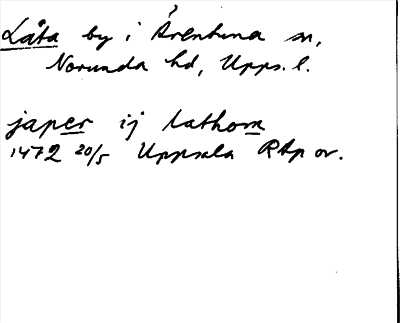 Låta by i Ärentuna sn,
Norunda hd, Upps. l.
japer ij lathom
1472 20/5 Uppsala RAp or.